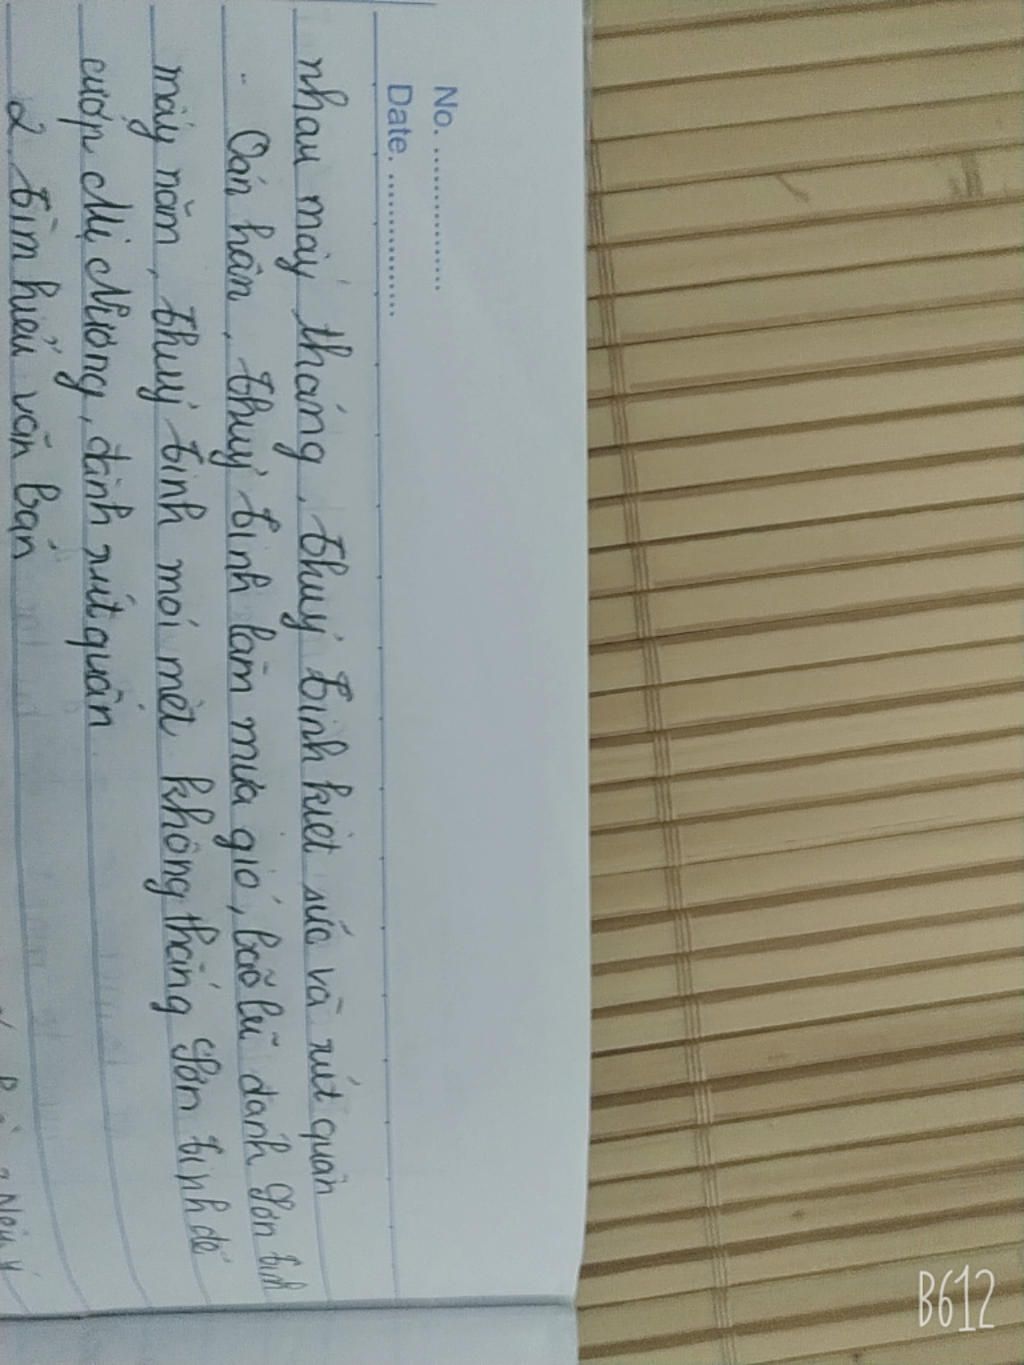 No. ................
Date. ................
nhau mấy tháng, thuỷ tinh kiệt sức và rút quân
- Oán hận, thuỷ tinh làm mưa gió, bão lũ đánh Sơn tinh
mấy năm, thuỷ tinh mỏi mệt không thắng Sơn tinh để
cướp Mị Nương, đành rút quân
2, tìm hiểu văn bản
B612